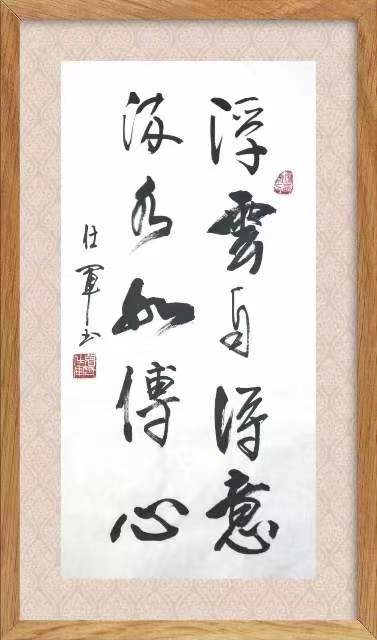 浮雲自得意
流水如傳心
仕軍書